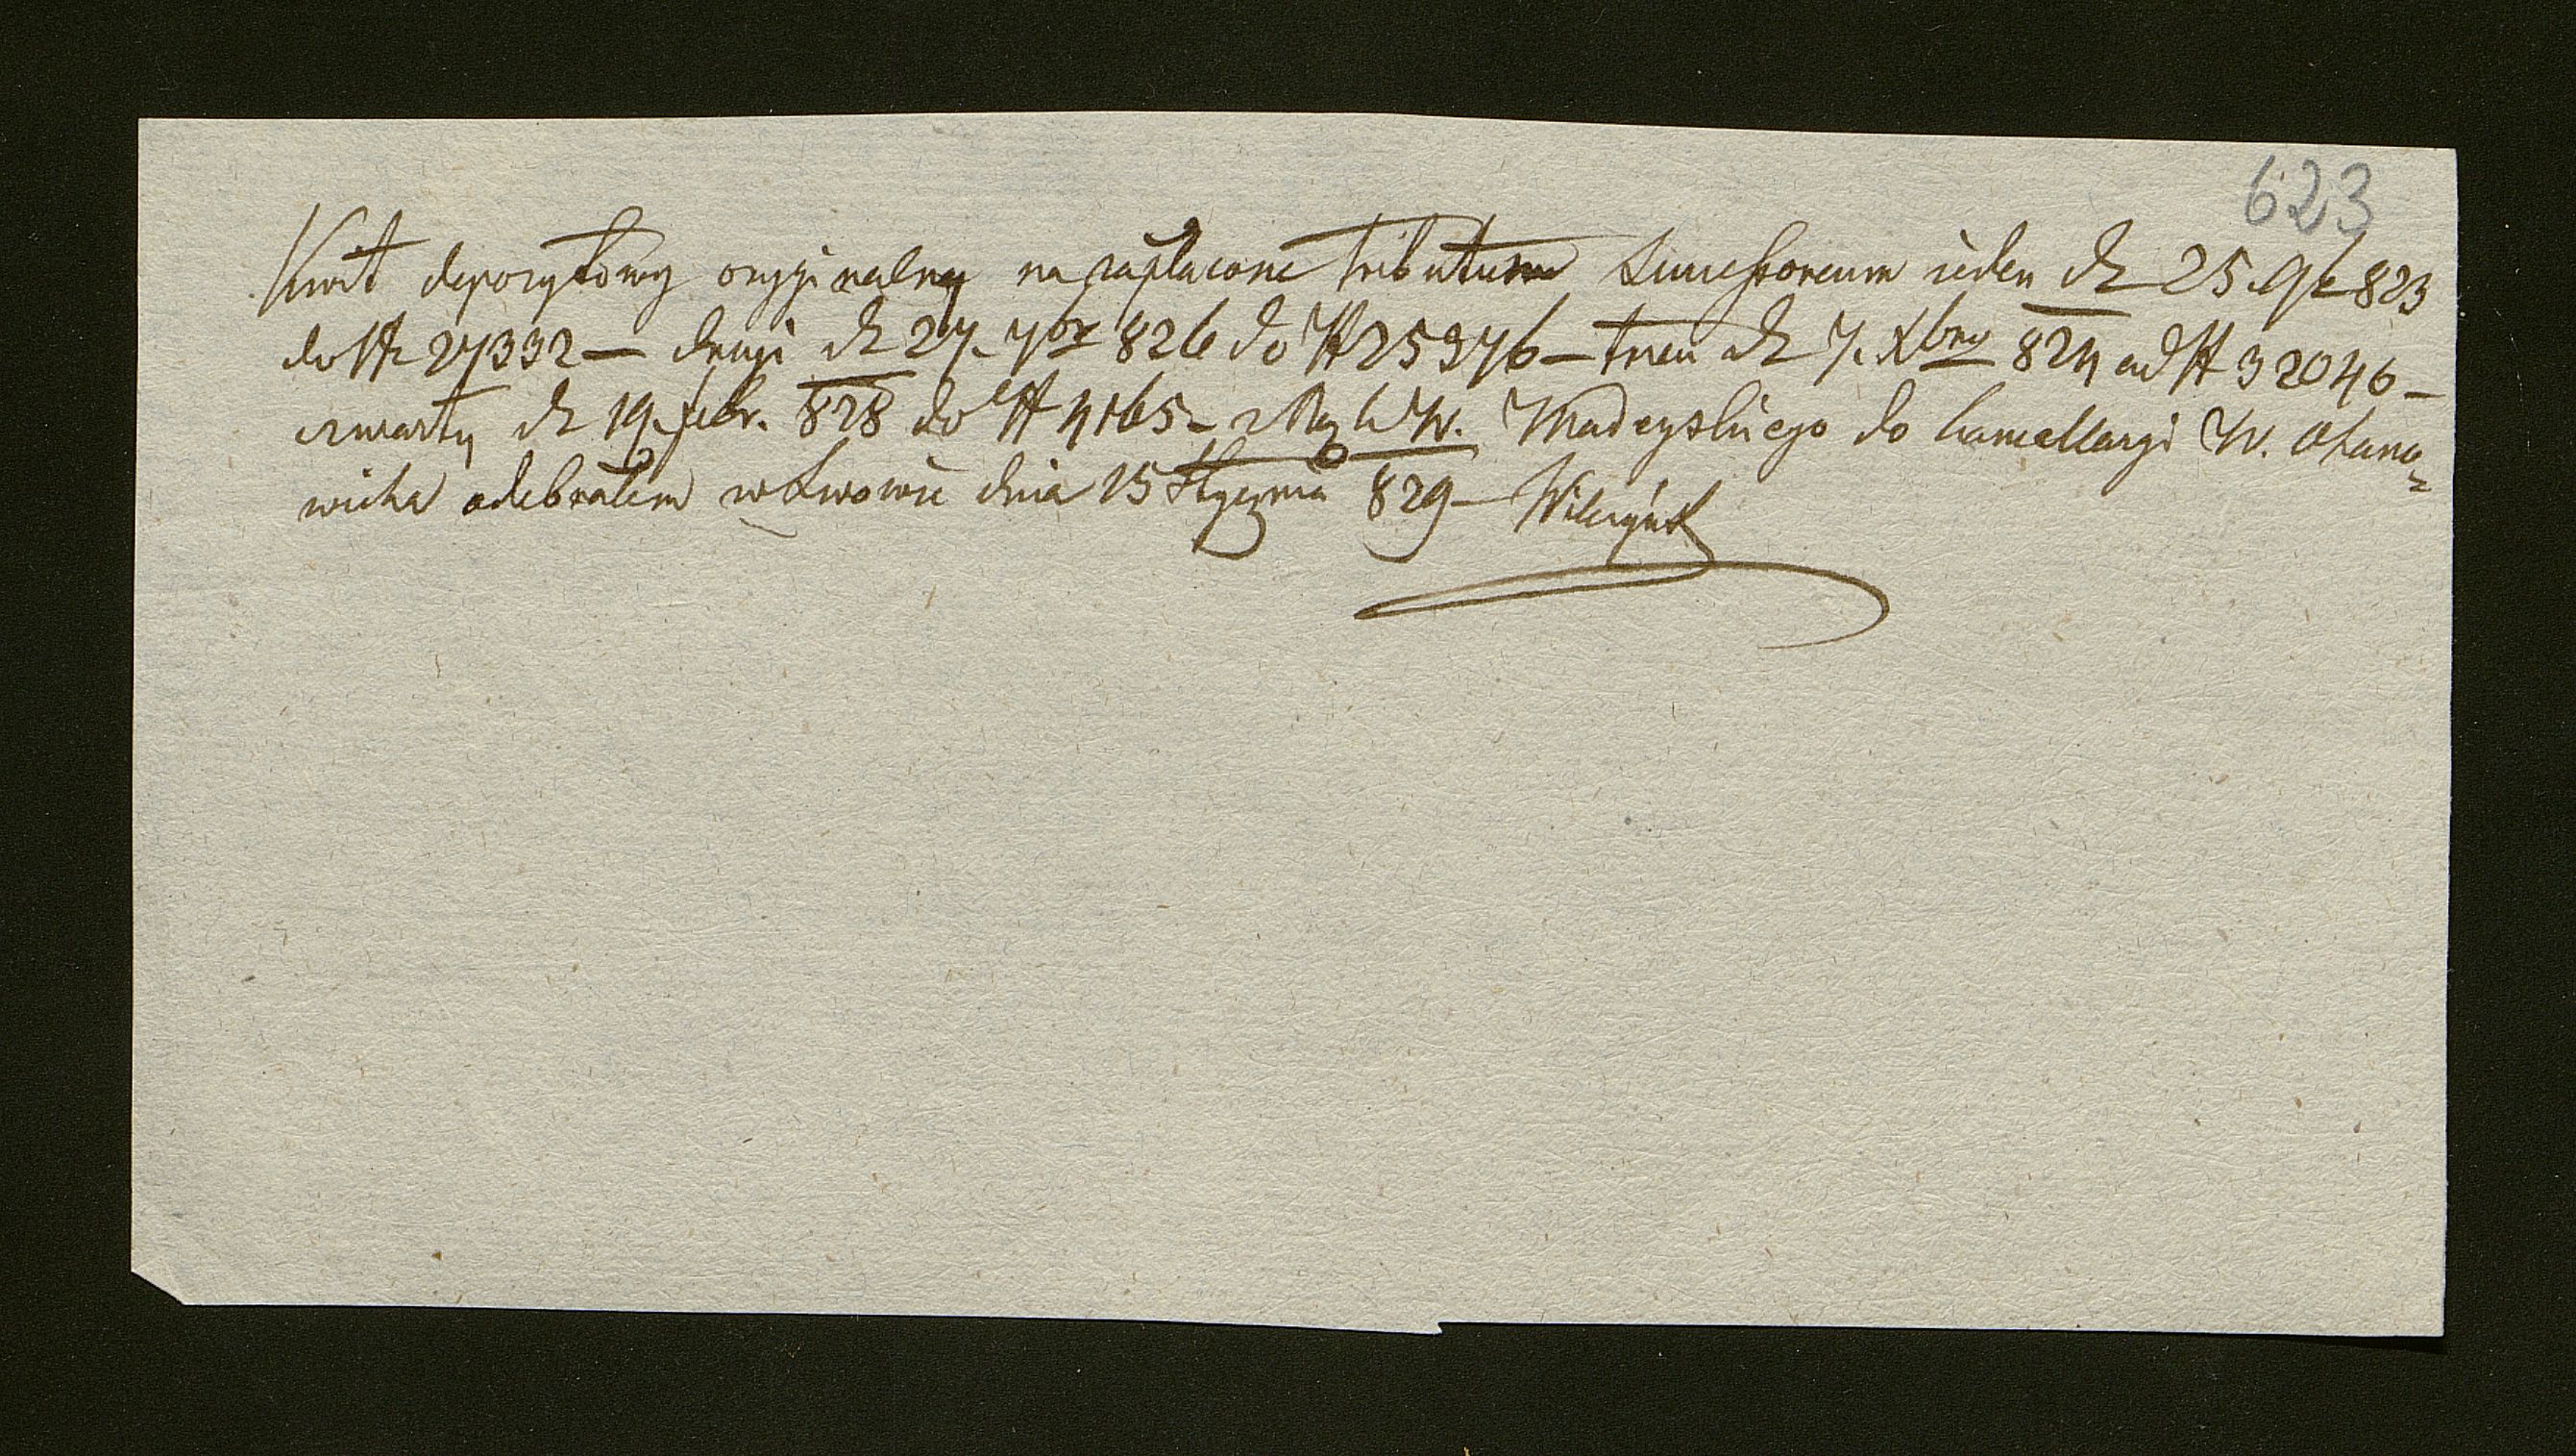 623
Kwit depozytowy oryginalny na zapłacone Tributum Successoreum ieden dt 25. 9b 823
do N 27332 — drugi dt 27. 7br 826 do N 25976 — trzeci dt 7. Xbra 824 ad N 32046 —
czwarty dt 19. febr. 828 do N 4165 — z Rąk W. Madeyskiego do Kancellaryi W.
wicha odebrałem w Lwowie dnia 15 Stycznia 829 —